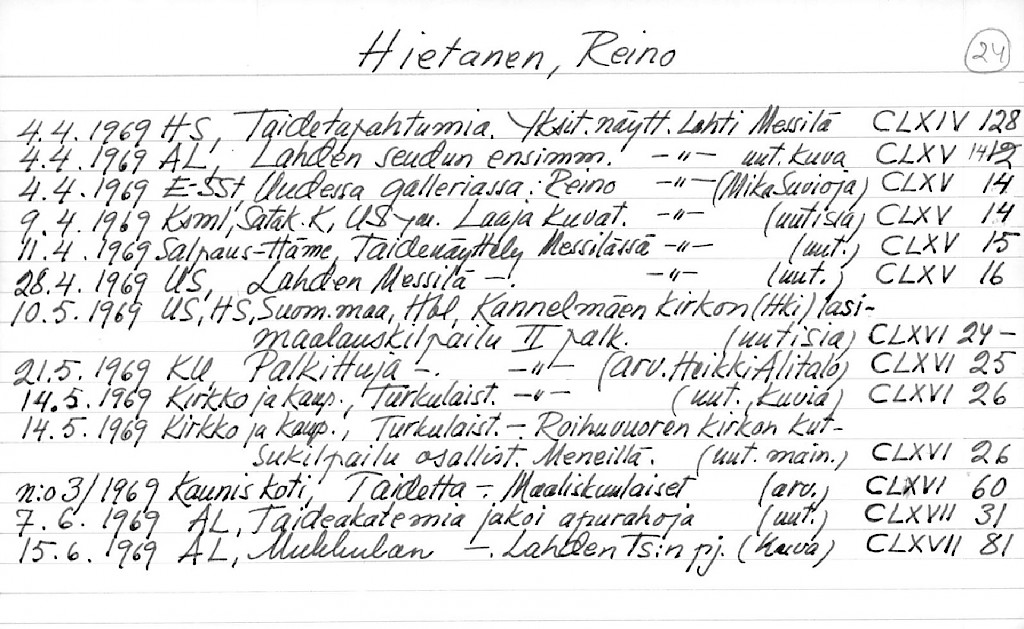 Hietanen, Reino 24
4.4.1969 HS, Taidetapahtumia. Yksit.näytt. Lahti Messilä CLXIV 128
4.4.1969 AL, Lahden seudun ensimm. -"- uut. kuva CLXV
4.4.1969 E-SSt, Uudessa galleriassa: Reino -"- (Mika Suvioja) CLXV 14
9.4.1969 Ksml, Satak.K, US ym. Laaja kuvat. -"- (uutisia) CLXV 14
11.4.1969 Salpaus-Häme, Taidenäyttely Messilässä -"- (uut.) CLXV 15
28.4.1969 US, Lahden Messilä -. -"- (uut.) CLXV 16
10.5.1969 US, HS, Suom.maa, Hbl, Kannelmäen kirkon (Hki) lasi-
maalauskilpailu II palk. (uutisia) CLXVI 24-
21.5.1969 KU, Palkittuja -. -"- (arv. Heikki Alitalo) CLXVI 25
14.5.1969 Kirkko ja kaup., Turkulaist. -"- (uut., kuvia) CLXVI 26
14.5.1969 Kirkko ja kaup., Turkulaist. -. Roihuvuoren kirkon kut-
sukilpailu osallist. Meneillä. (uut. main.) CLXVI 26
n:o 3/1969 Kaunis koti, Taidetta -. Maaliskuulaiset (arv.) CLXVI 60
7.6.1969 AL, Taideakatemia jakoi apurahoja (uut.) CLXVII 31
15.6.1969 AL, Mukkulan -. Lahden Ts:n pj. (kuva) CLXVII 81